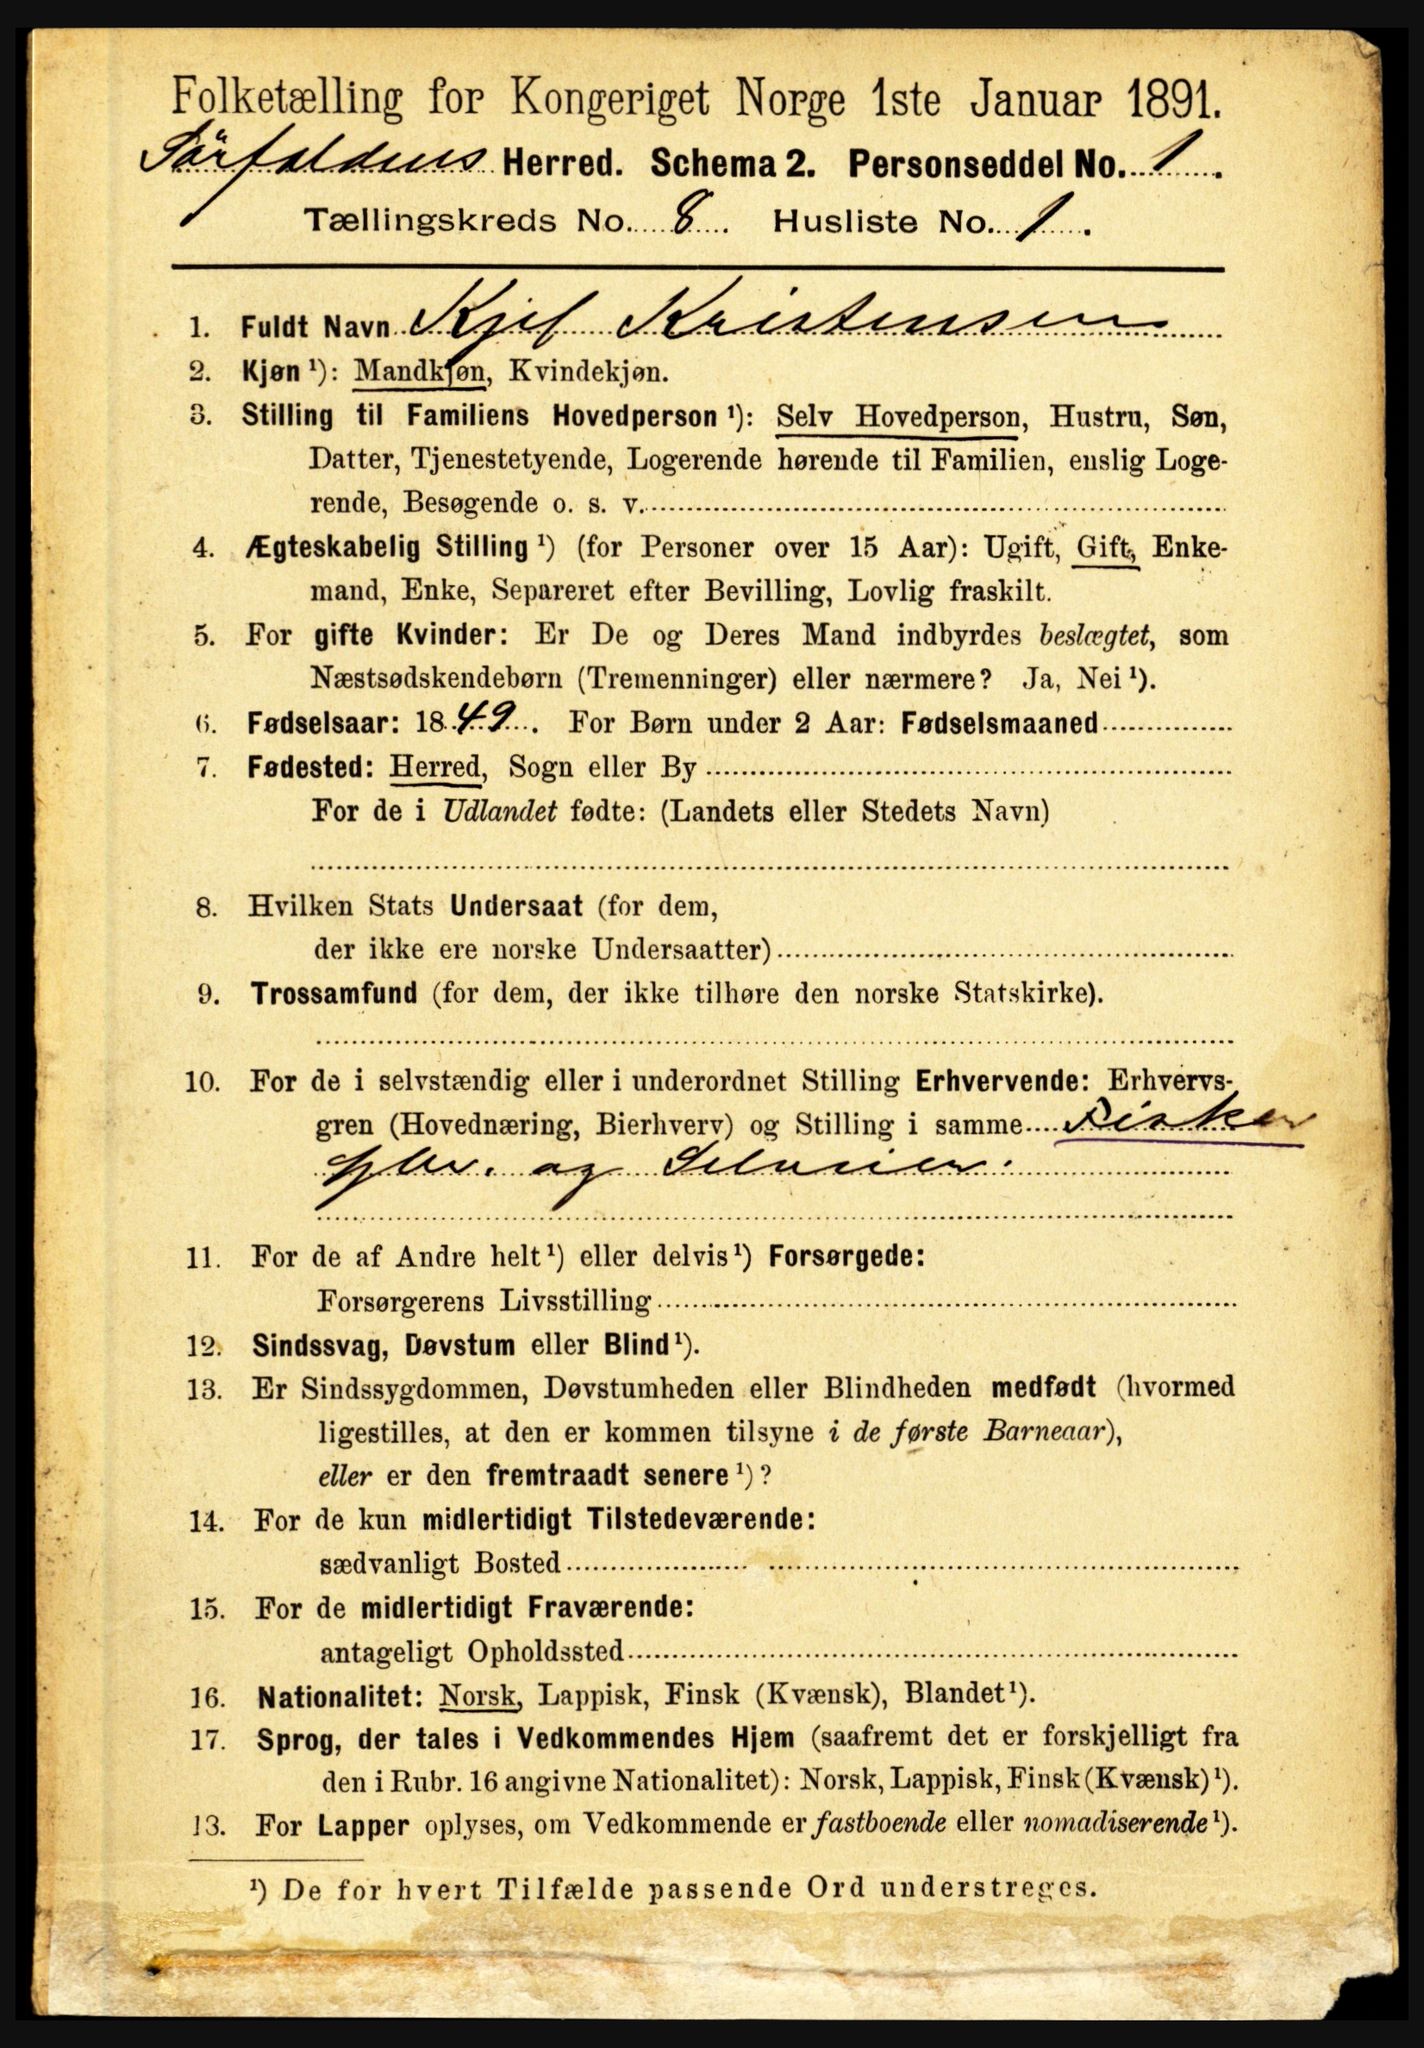 Folketælling for Kongeriget Norge 1ste Januar 1891.
Sørfoldens Herred. Schema 2. Personseddel No. 1
Tællingskreds No. 8. Husliste No. 1.
1. Fuldt Navn Kristensen
2. Kjøn¹): Mandkjøn, Kvindekjøn.
3. Stilling til Familiens Hovedperson¹): Selv Hovedperson, Hustru, Søn,
Datter, Tjenestetyende, Logerende hørende til Familien, enslig Loge-
rende, Besøgende o. s. v.
4. Ægteskabelig Stilling¹) (for Personer over 15 Aar): Ugift, Gift, Enke-
mand, Enke, Separeret efter Bevilling, Lovlig fraskilt.
5. For gifte Kvinder: Er De og Deres Mand indbyrdes beslægtet, som
Næstsødskendebørn (Tremenninger) eller nærmere? Ja, Nei¹).
6. Fødselsaar: 1849. For Børn under 2 Aar: Fødselsmaaned
7. Fødested: Herred, Sogn eller By
For de i Udlandet fødte: (Landets eller Stedets Navn)
8. Hvilken Stats Undersaat (for dem,
der ikke ere norske Undersaatter)
9. Trossamfund (for dem, der ikke tilhøre den norske Statskirke).
10. For de i selvstændig eller i underordnet Stilling Erhvervende: Erhvervs-
gren (Hovednæring, Bierhverv) og Stilling i samme Fisker
og Selveier.
11. For de af Andre helt¹) eller delvis¹) Forsørgede:
Forsørgerens Livsstilling
12. Sindssvag, Døvstum eller Blind¹).
13. Er Sindssygdommen, Døvstumheden eller Blindheden medfødt (hvormed
ligestilles, at den er kommen tilsyne i de første Barneaar),
eller er den fremtraadt senere¹)?
14. For de kun midlertidigt Tilstedeværende:
sædvanligt Bosted
15. For de midlertidigt Fraværende:
antageligt Opholdssted
16. Nationalitet: Norsk, Lappisk, Finsk (Kvænsk), Blandet¹).
17. Sprog, der tales i Vedkommendes Hjem (saafremt det er forskjelligt fra
den i Rubr. 16 angivne Nationalitet): Norsk, Lappisk, Finsk (Kvænsk)¹).
13. For Lapper oplyses, om Vedkommende er fastboende eller nomadiserende¹).
¹) De for hvert Tilfælde passende Ord understreges.